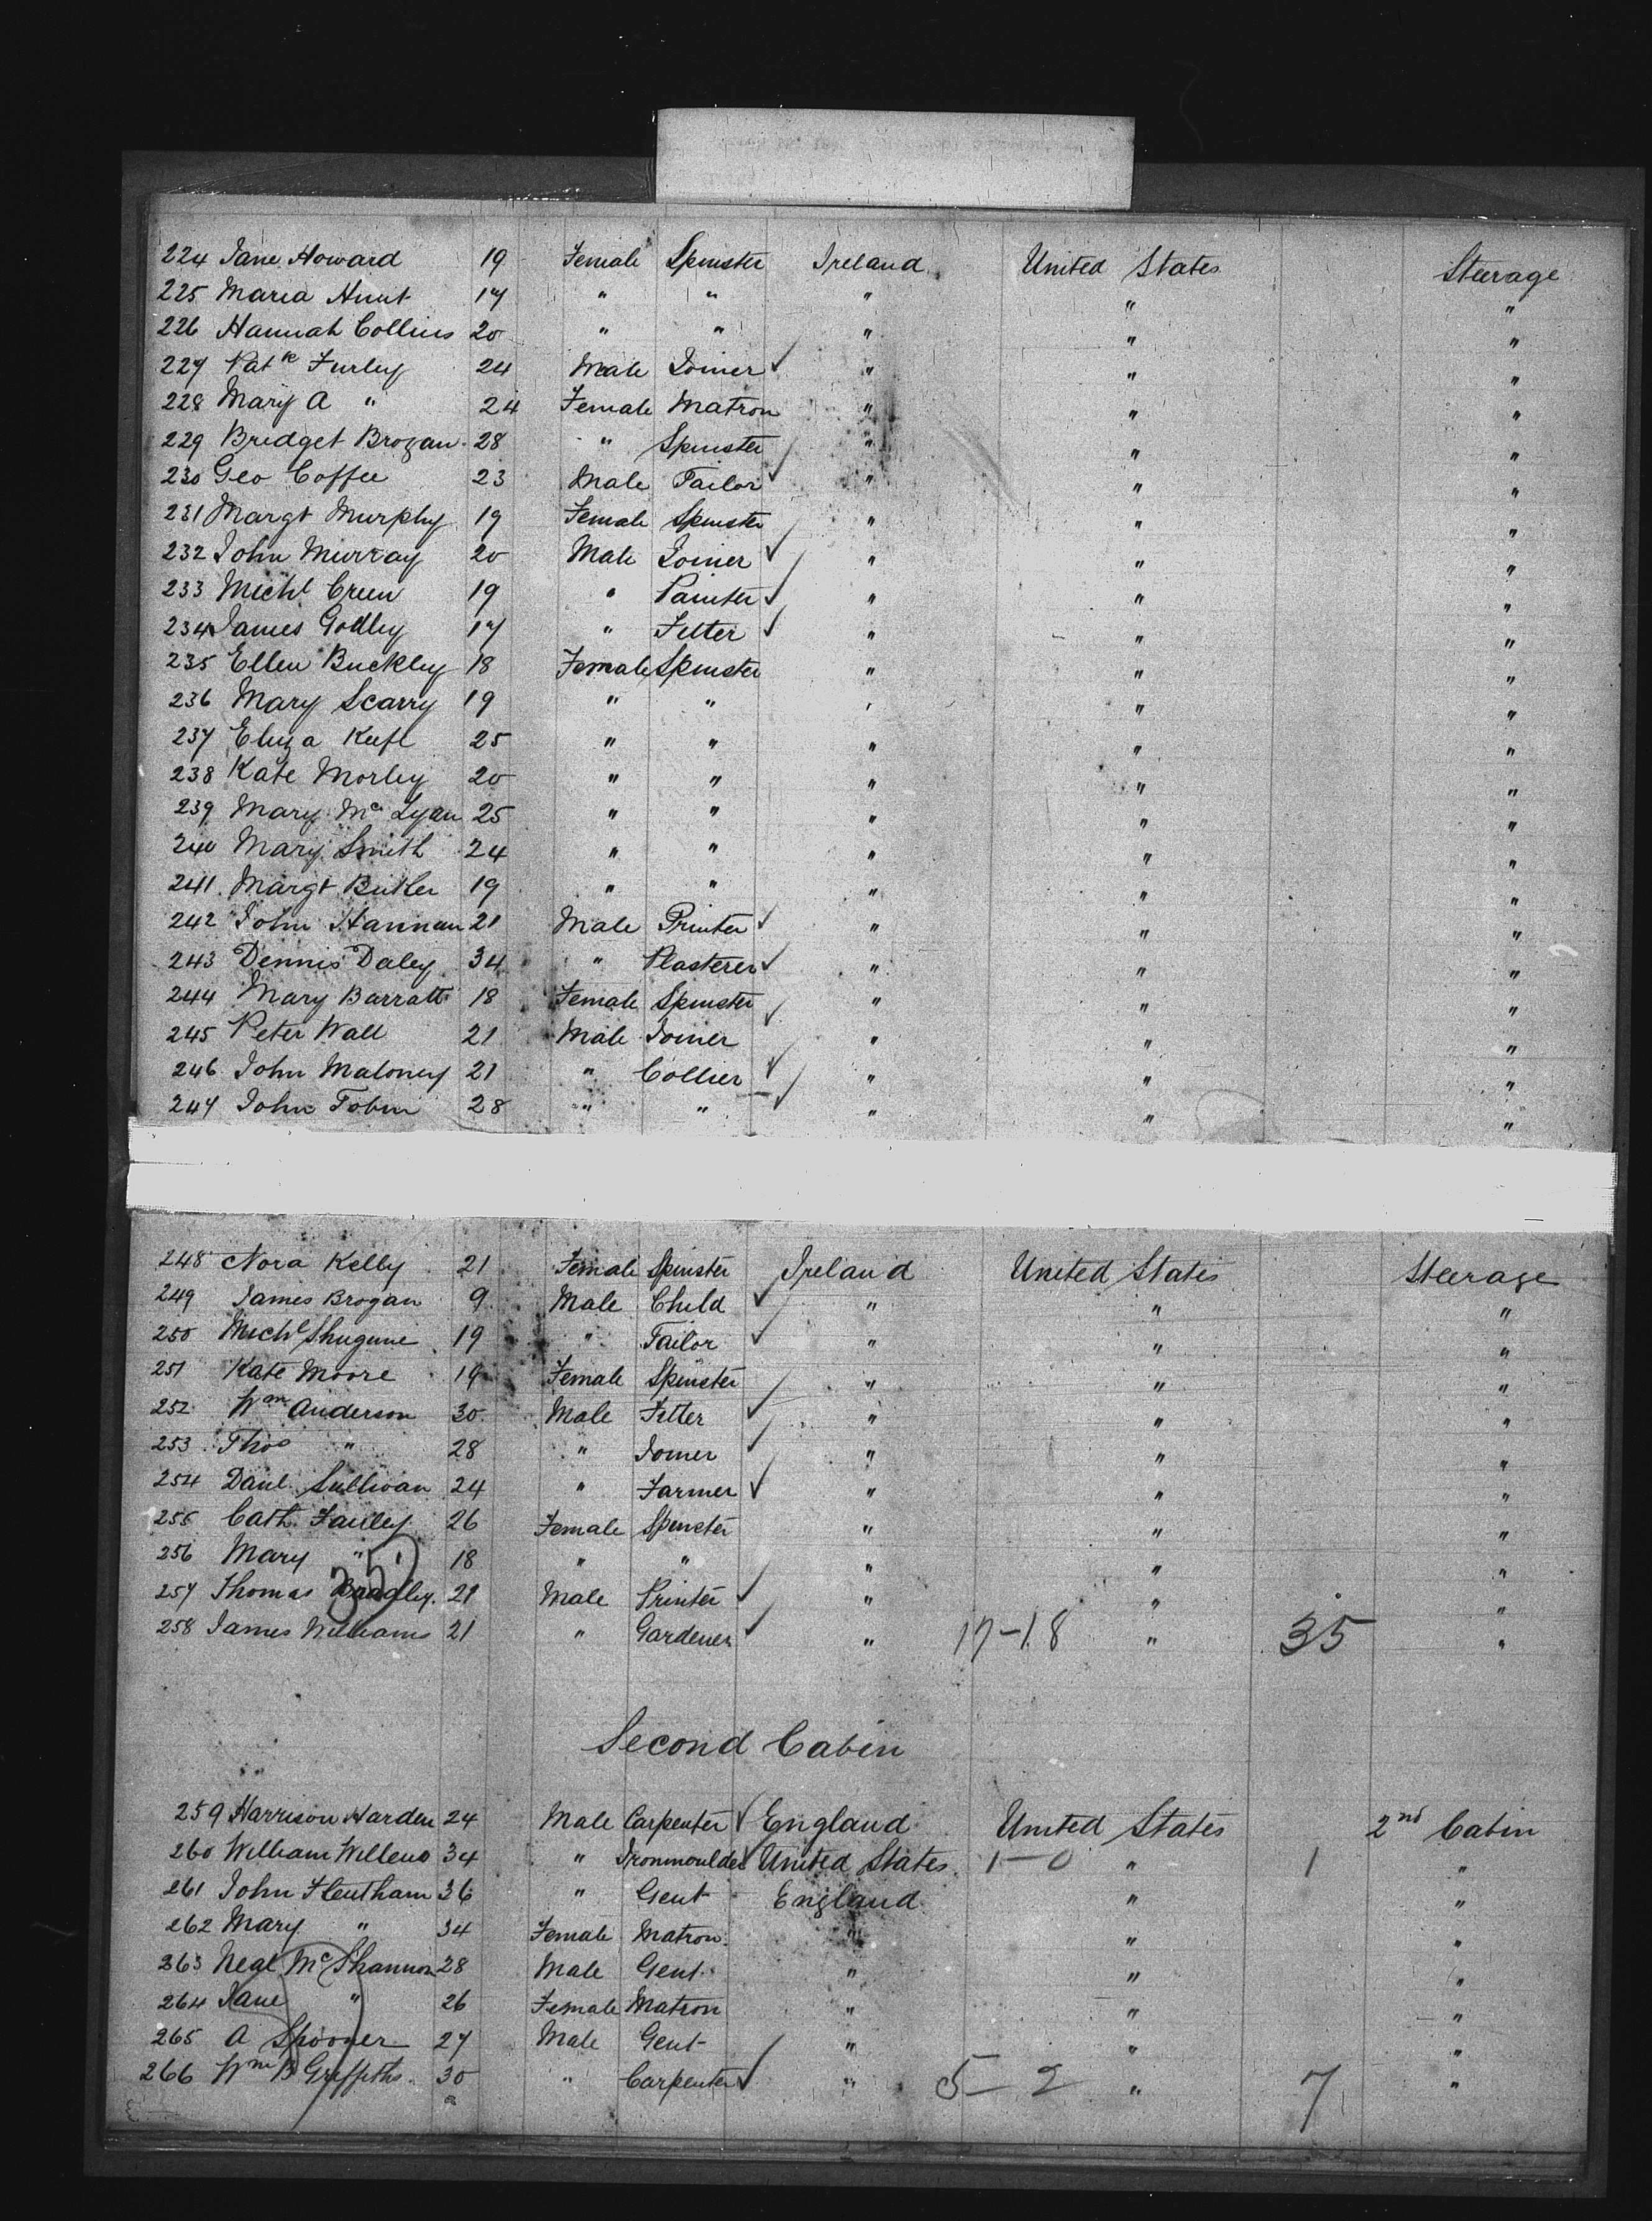 224 Jane Howard 19 Female Spinster Ireland United States Steerage
225 Maria Hunt 17 " " " " "
226 Hannah Collins 20 " " " " "
227 Patk Furley 24 Male Joiner " " "
228 Mary A " 24 Female Matron " " "
229 Bridget Brogan 28 " Spinster " " "
230 Geo Coffee 23 Male Tailor " " "
231 Margt Murphy 19 Female Spinster " " "
232 John Murray 20 Male Joiner " " "
233 Michl Creen 19 " Painter " " "
234 James Godley 17 " Fitter " " "
235 Ellen Buckley 18 Female Spinster " " "
236 Mary Scarry 19 " " " " "
237 Eliza Keefe 25 " " " " "
238 Kate Morley 20 " " " " "
239 Mary Mc Lyan 25 " " " " "
240 Mary Smith 24 " " " " "
241 Margt Butler 19 " " " " "
242 John Hannan 21 Male Printer " " "
243 Dennis Daley 34 " Plasterer " " "
244 Mary Barratt 18 Female Spinster " " "
245 Peter Wall 21 Male Joiner " " "
246 John Maloney 21 " Collier " " "
247 John Tobin 28 " " " " "
248 Nora Kelly 21 Female Spinster Ireland United States Steerage
249 James Brogan 9 Male Child " " "
250 Michl Shugune 19 " Tailor " " "
251 Kate Moore 19 Female Spinster " " "
252 Wm Anderson 30 Male Fitter " " "
253 Thos " 28 " Joiner " " "
254 Danl Sullivan 24 " Farmer " " "
255 Cath 26 Female Spinster " " "
256 Mary " 18 " " " " "
257 Thomas Bradley 21 Male Printer " " "
258 James Williams 21 " Gardener " 17-18 " 35 "
35
Second Cabin
259 Harrison Harden 24 Male Carpenter England United States 2nd Cabin
260 William Willens 34 " Ironmoulder United States 1-0 " 1 "
261 John Flentham 36 " Gent England " "
262 Mary " 34 Female Matron " " "
263 Neal Mc Shannon 28 Male Gent " " "
264 Jane " 26 Female Matron " " "
265 A Spooner 27 Male Gent " " "
266 Wm B Griffiths 30 " Carpenter " 5-2 " 7 "